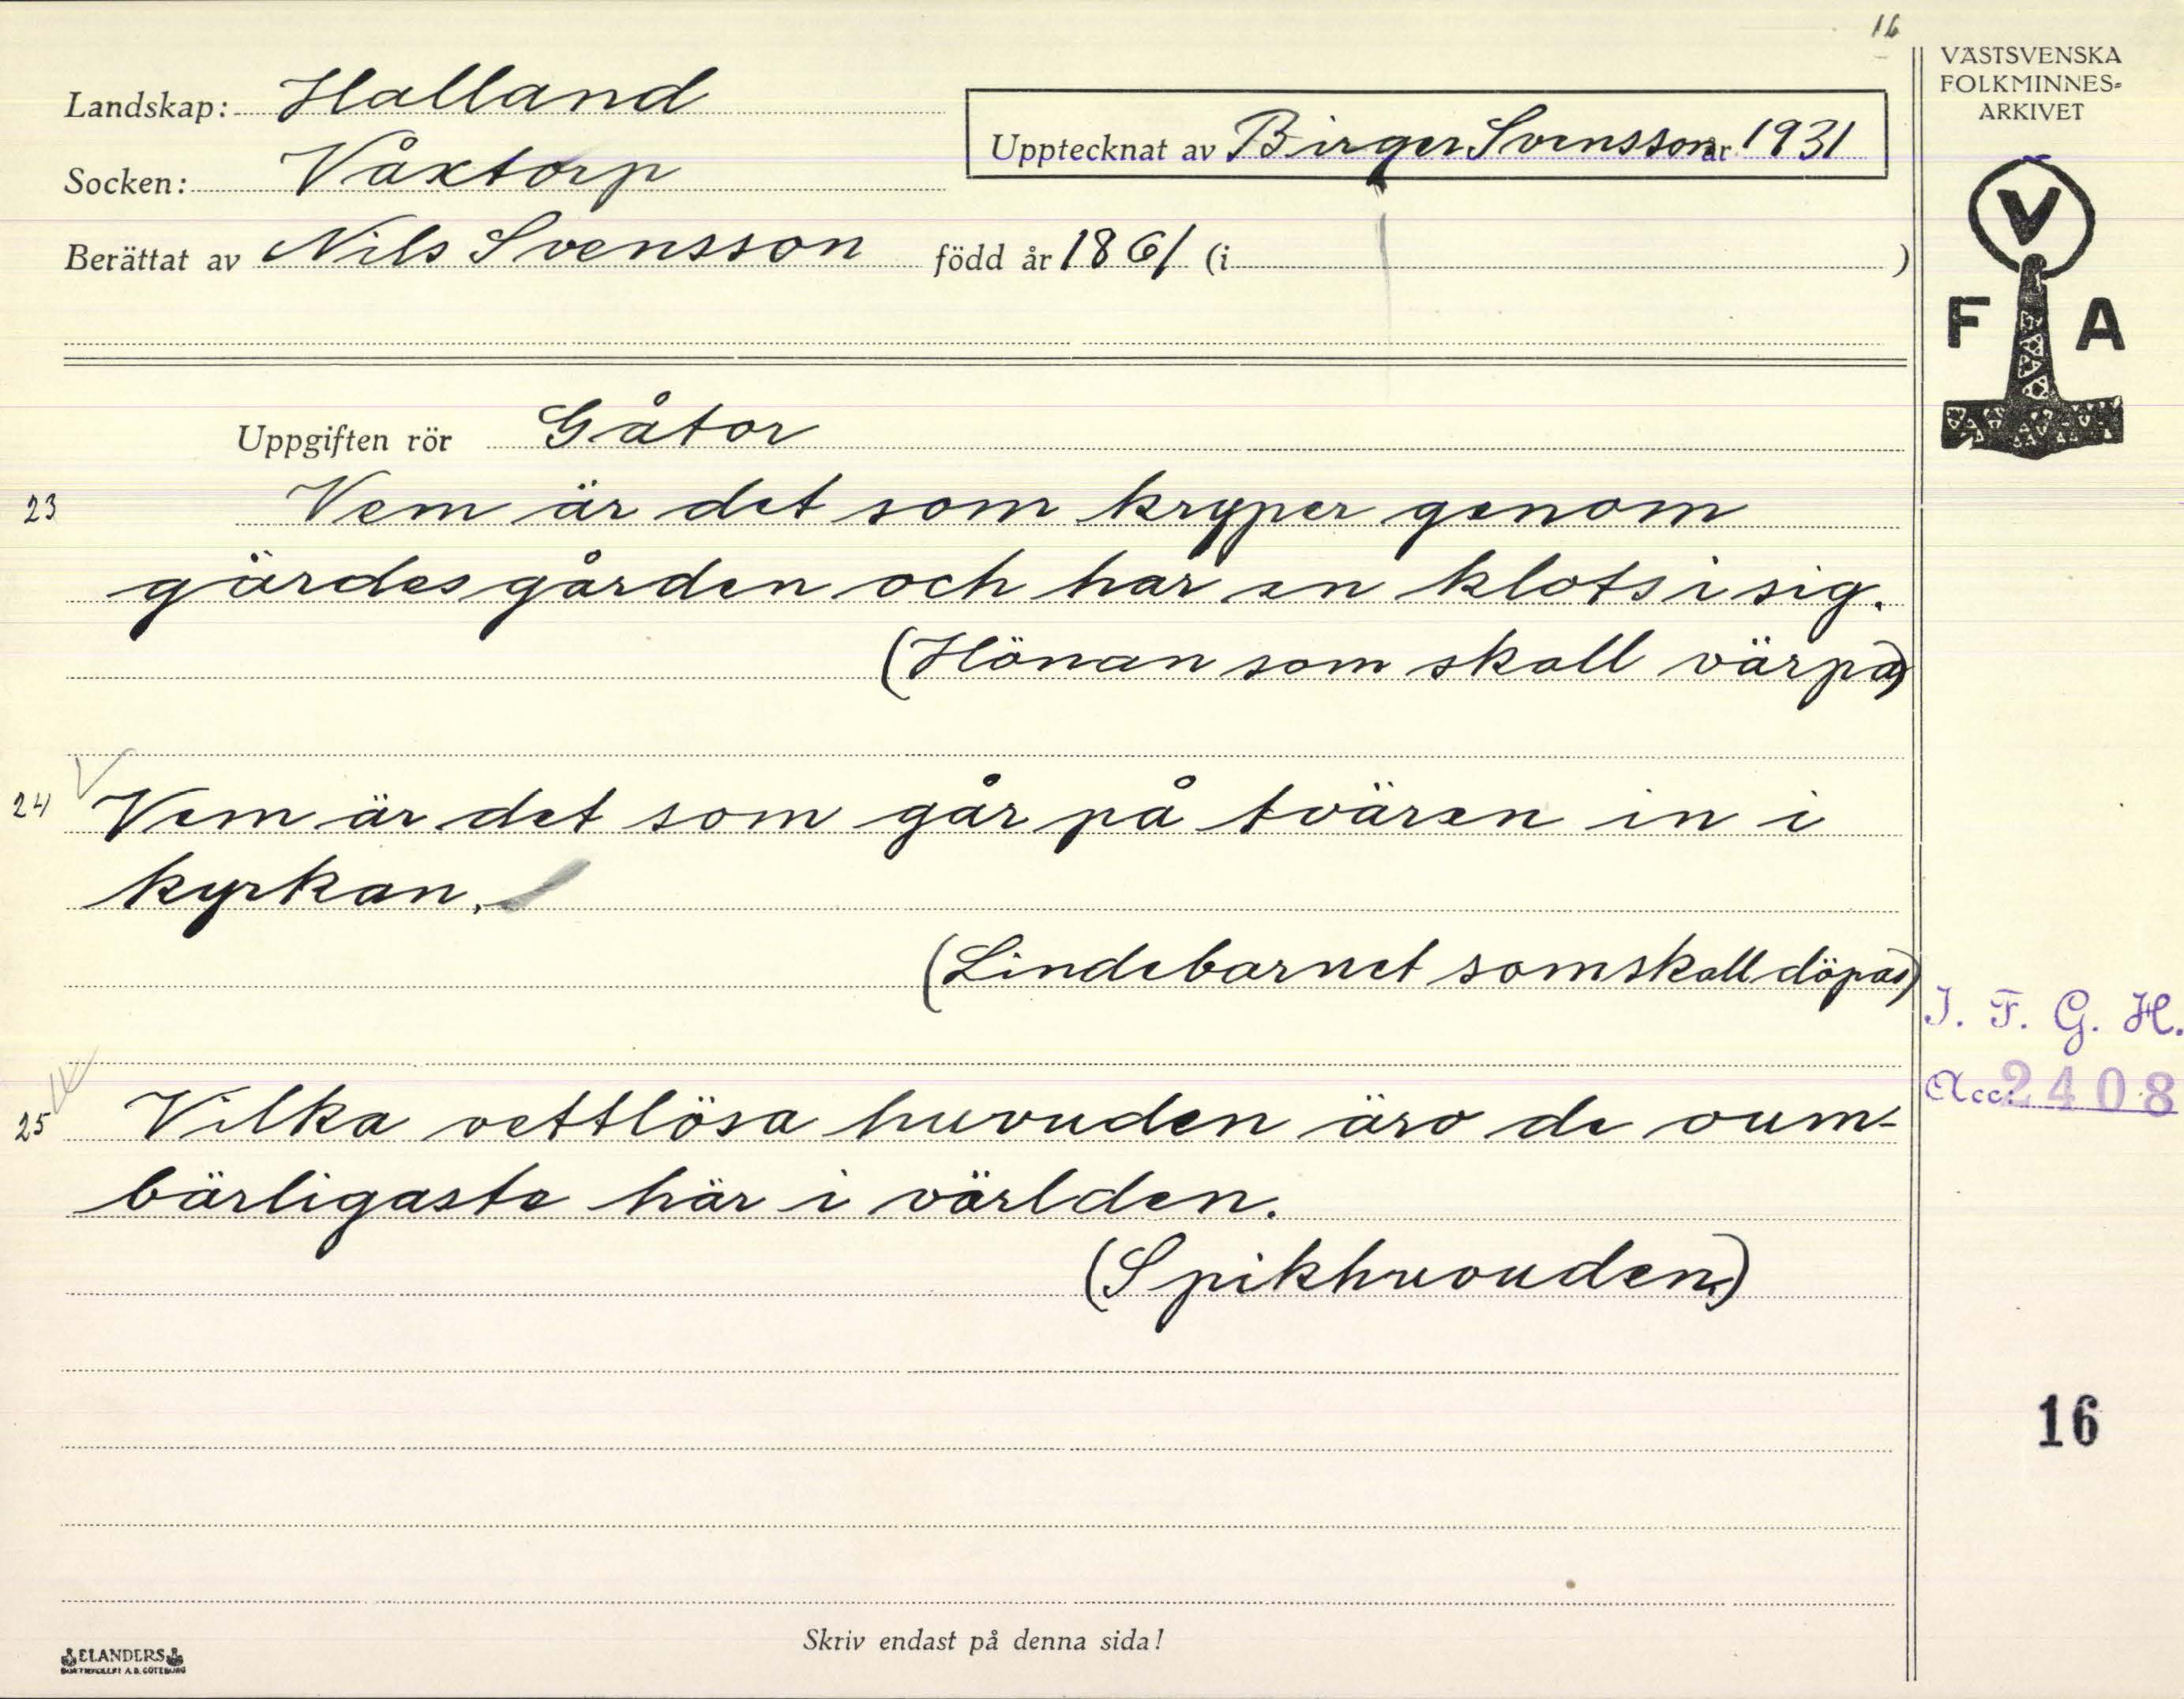 16
VÄSTSVENSKA
FOLKMINNES=
ARKIVET
Landskap: Halland
Upptecknat av Birger Svensson år 1931
Socken: Våxtorp
Berättat av Nils Svensson född år 1861 (i )
V
F A
Uppgiften rör Gåtor
23 Vem är det som kryper genom
gärdesgården och har en klots i sig.
(Hönan som skall värpa)
24 Vem är det som går på tvären in i
kyrkan.
(Lindebarnet som skall döpas)
I. F. G. H.
Acc. 2408
25 Vilka vettlösa huvuden äro de oum-
bärligaste här i världen.
(Spikhuvuden)
16
Skriv endast på denna sida!
ELANDERS
BOKTRYCKERI A.B. GÖTEBORG